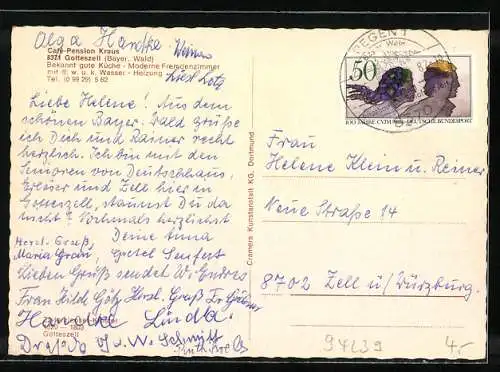 Olga Hantke
Café-Pension Kraus
8371 Gotteszell (Bayer. Wald)
Bekannt gute Küche · Moderne Fremdenzimmer
mit fl. w. u. k. Wasser · Heizung
Tel. (0 99 29) 5 82
Liebe Helene! Aus dem
schönen Bayer. Wald grüße
ich Dich und Rainer recht
herzlich. Ich bin mit den
Senioren von Deutschhaus,
und Zell hier in
Gotteszell, staunst Du da
nicht? Vormals herzlichst
Deine Anna
Herzl. Gruß,
Maria Grau, Gretel Seufert
Lieben Gruß sendet W. Endres
Frau Hild Götz Herzl. Gruß Fr.
Linda
Gotteszell
W. Schmitt
Cramers Kunstanstalt KG, Dortmund
REGEN 1
50
100 JAHRE CVJM DEUTSCHE BUNDESPOST
Frau
Helene Klein u. Reiner
Neue Straße 14
8702 Zell ü/Würzburg.
94239
4.-